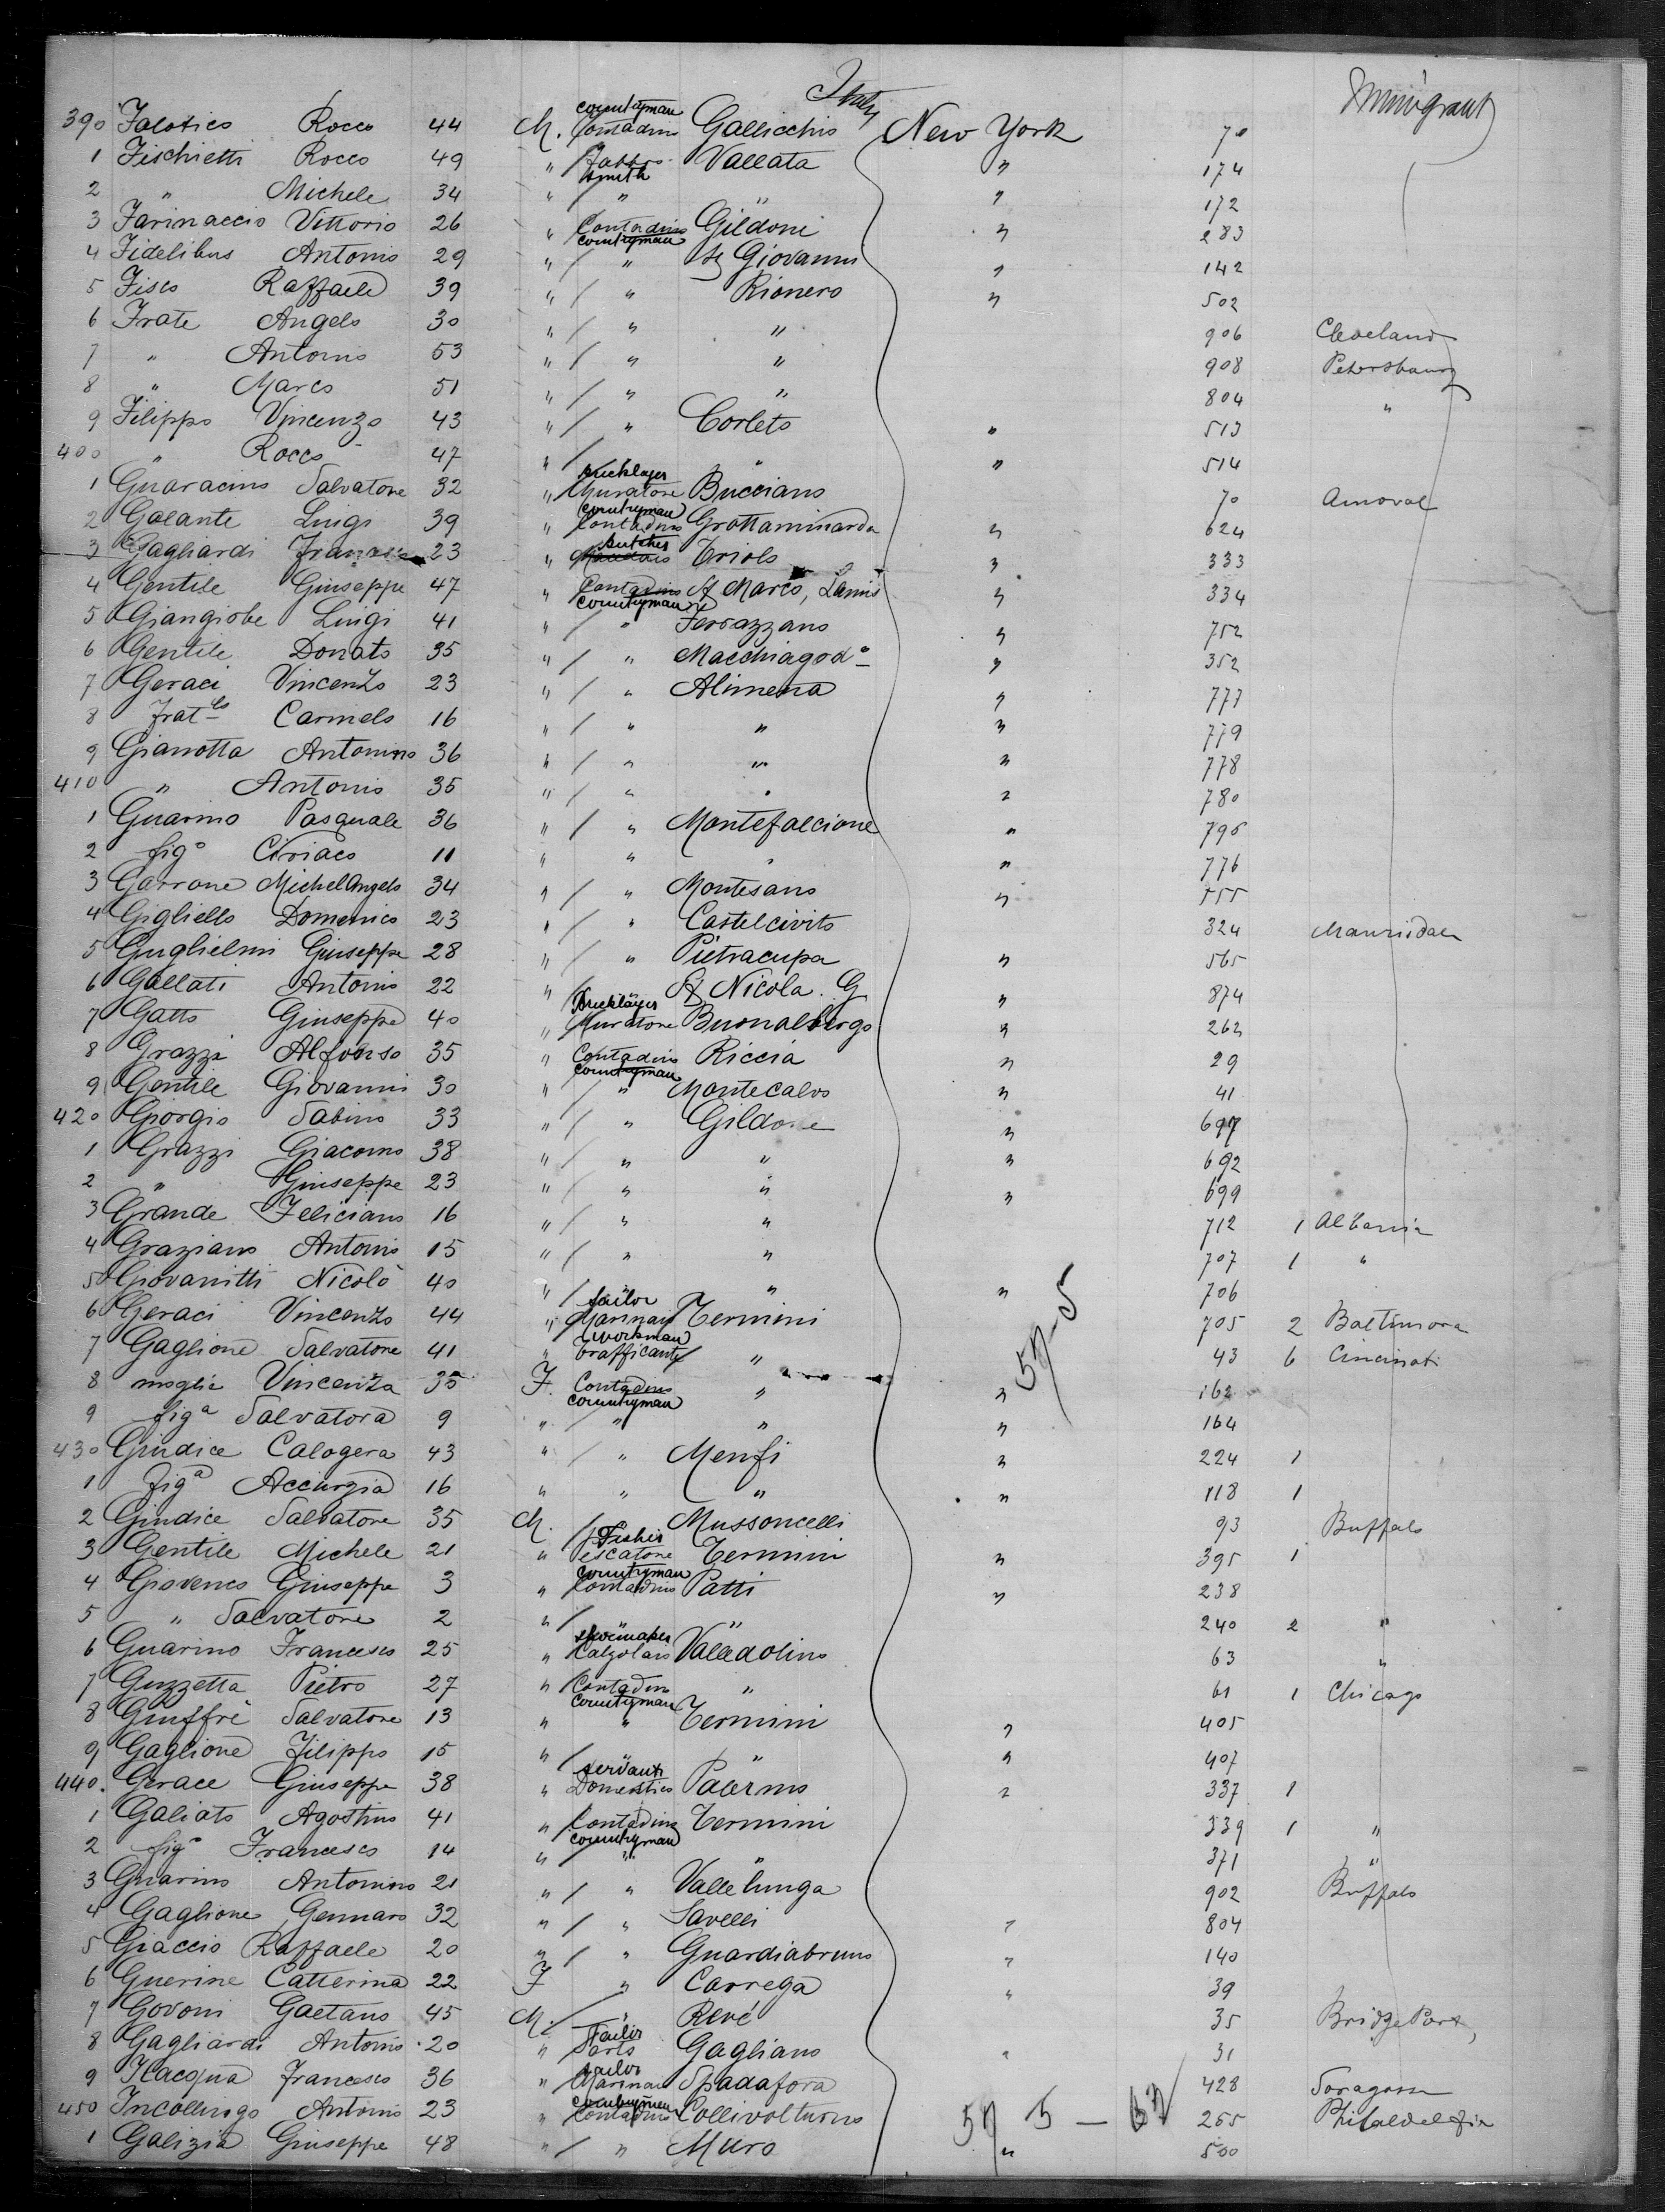 Italy Immigrant
countryman
390 Falotico Rocco 44 M. Contadino Gallicchio New York 70
1 Fischietti Rocco 49 " Fabbro Vallata " 174
smith
2 " Michele 34 " " " " 172
3 Farinaccio Vittorio 26 " Contadino Gildoni " 283
countryman
4 Fidelibus Antonio 29 " " Giovanni " 142
5 Fisco Raffaele 39 " " Rionero " 502
6 Frate Angelo 30 " " " 906 Cleveland
7 " Antonio 53 " " " 908
8 " Marco 51 " " " 804 "
9 Filippo Vincenzo 43 " " Corleto " 513
400 " Rocco 47 " " " " 514
bricklayer
1 Guaracino Salvatore 32 " Muratore Bucciano 70
countryman
2 Galante Luigi 39 " Contadino Grottaminarda " 624
butcher
3 Gagliardi 23 " Triolo " 333
4 Gentile Giuseppe 47 " Contadino St Marco, Lamis " 334
countryman
5 Giangiobe Luigi 41 " " Ferrazzano " 752
6 Gentile Donato 35 " " Macchiagod.a " 352
7 Geraci Vincenzo 23 " " Alimena " 777
8 frat.lo Carmelo 16 " " " " 779
9 Gianotta Antonino 36 " " " " 778
410 " Antonio 35 " " " " 780
1 Guarino Pasquale 36 " " Montefalcione " 795
2 figo Ciriaco 11 " " " " 776
3 Garrone MichelAngelo 34 " " Montesano " 555
4 Gigliello Domenico 23 " " Castelcivito 324
5 Guglielmi Giuseppe 28 " " Pietracupa " 565
6 Gallati Antonio 22 " St Nicola. G. " 874
bricklayer
7 Gatto Giuseppe 40 " Muratore Buonalbergo " 262
8 Grazzi Alfonso 35 " Contadino Riccia " 29
countryman
9 Gentile Giovanni 30 " " Montecalvo " 41
420 Giorgio Sabino 33 " " Gildone "
1 Grazzi Giacomo 38 " " " " 692
2 " Giuseppe 23 " " " " 699
3 Grande Feliciano 16 " " " 712 1 Albania
4 Graziano Antonio 15 " " " 707 1 "
5 Giovanitti Nicolò 40 " " " 706
sailor
6 Geraci Vincenzo 44 " Marinaio Termini 705 2 Baltimora
workman
7 Gaglione Salvatore 41 " trafficante " 43 6 Cincinati
57-5
8 moglie Vincenza 35 F. Contadino " " 162
countryman
9 figa Salvatora 9 " " " " 164
430 Giudice Calogera 43 " " Menfi " 224 1
1 figa Accurgia 16 " " " " 118 1
2 Giudice Salvatore 35 M. Mussoncelli 93 Buffalo
Fisher
3 Gentile Michele 21 " Pescatore Termini " 395 1
countryman
4 Giovenco Giuseppe 3 " Contadino Patti " 238
5 " Salvatore 2 " " 240 2 "
shoemaker
6 Guarino Francesco 25 " Calzolaio Valledolmo 63 "
7 Guzzetta Pietro 27 " Contadino " 61 1 Chicago
countryman
8 Giuffrè Salvatore 13 " " Termini " 405
9 Gaglione Filippo 15 " " " 407
servant
440. Gerace Giuseppe 38 " Domestico Palermo " 337 1
1 Galiato Agostino 41 " Contadino Termini 339 1 "
countryman
2 figo Francesco 14 " " " 371 "
3 Guarino Antonino 21 " " Vallelunga 902 Buffalo
4 Gaglione Gennaro 32 " " Savelli " 804
5 Giaccio Raffaele 20 " " Guardiabruno " 140
6 Guerine Catterina 22 F " Carrega " 39
7 Govoni Gaetano 45 M. " Revé 35 BridgePort,
8 Gagliardi Antonio 20 " Sarto Gagliano " 31
sailor
9 Ilacqua Francesco 36 " Marinaio Spadafora 428
countryman
450 Incollingo Antonio 23 " Contadino Collivolturno 57 5 - 62 265 Philaldelfia
1 Galizia Giuseppe 48 " " Muro " 500